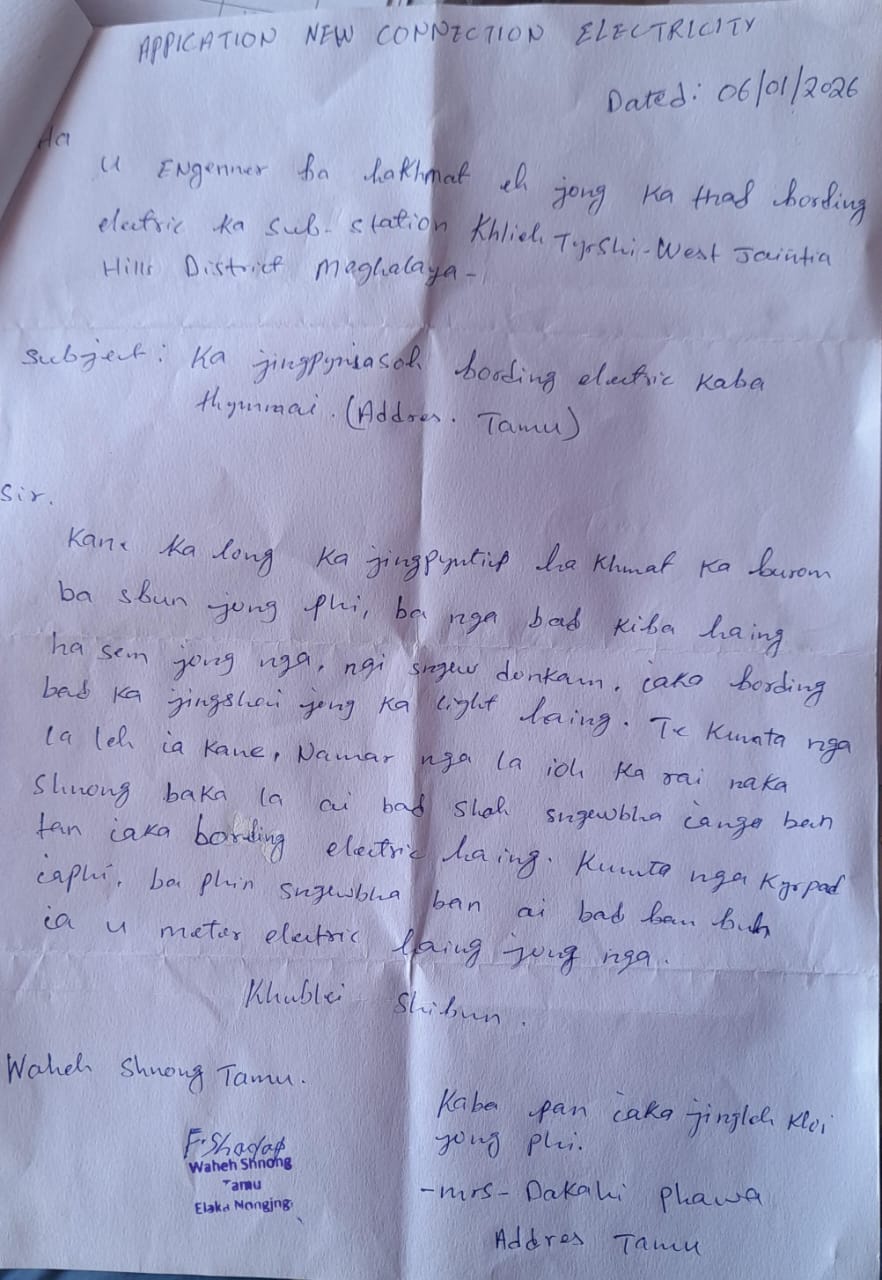 APPICATION NEW CONNECTION ELECTRICITY
Dated: 06/01/2026
Ha
U ENgenner ba hakhmat eh jong ka thad bording
electric ka sub-station Khlieh Tyrshi-West Jaintia
Hills District Meghalaya-
Subject: Ka jingpynïasoh bording electric kaba
thymmai. (Addres. Tamu)
Sir.
Kane ka long ka jingpyntip ha khmat ka burom
ba sbun jong phi, ba nga bad kiba haing
ha sem jong nga, ngi sngew donkam, iaka bording
bad ka jingshai jong ka light haing. Te kumta nga
la leh ia kane, Namar nga la ioh ka rai naka
Shnong baka la ai bad shah sngewbha ianga ban
tan iaka bording electric haing. Kumta nga kyrpad
iaphi, ba phin sngewbha ban ai bad ban buh
ia u meter electric haing jong nga.
Khublei Shibun.
Waheh Shnong Tamu.
F. Shadap
Waheh Shnong
Tamu
Elaka Nongjngi
Kaba pan iaka jingleh kloi
jong phi.
-mrs- Dakahi Phawa
Addres Tamu